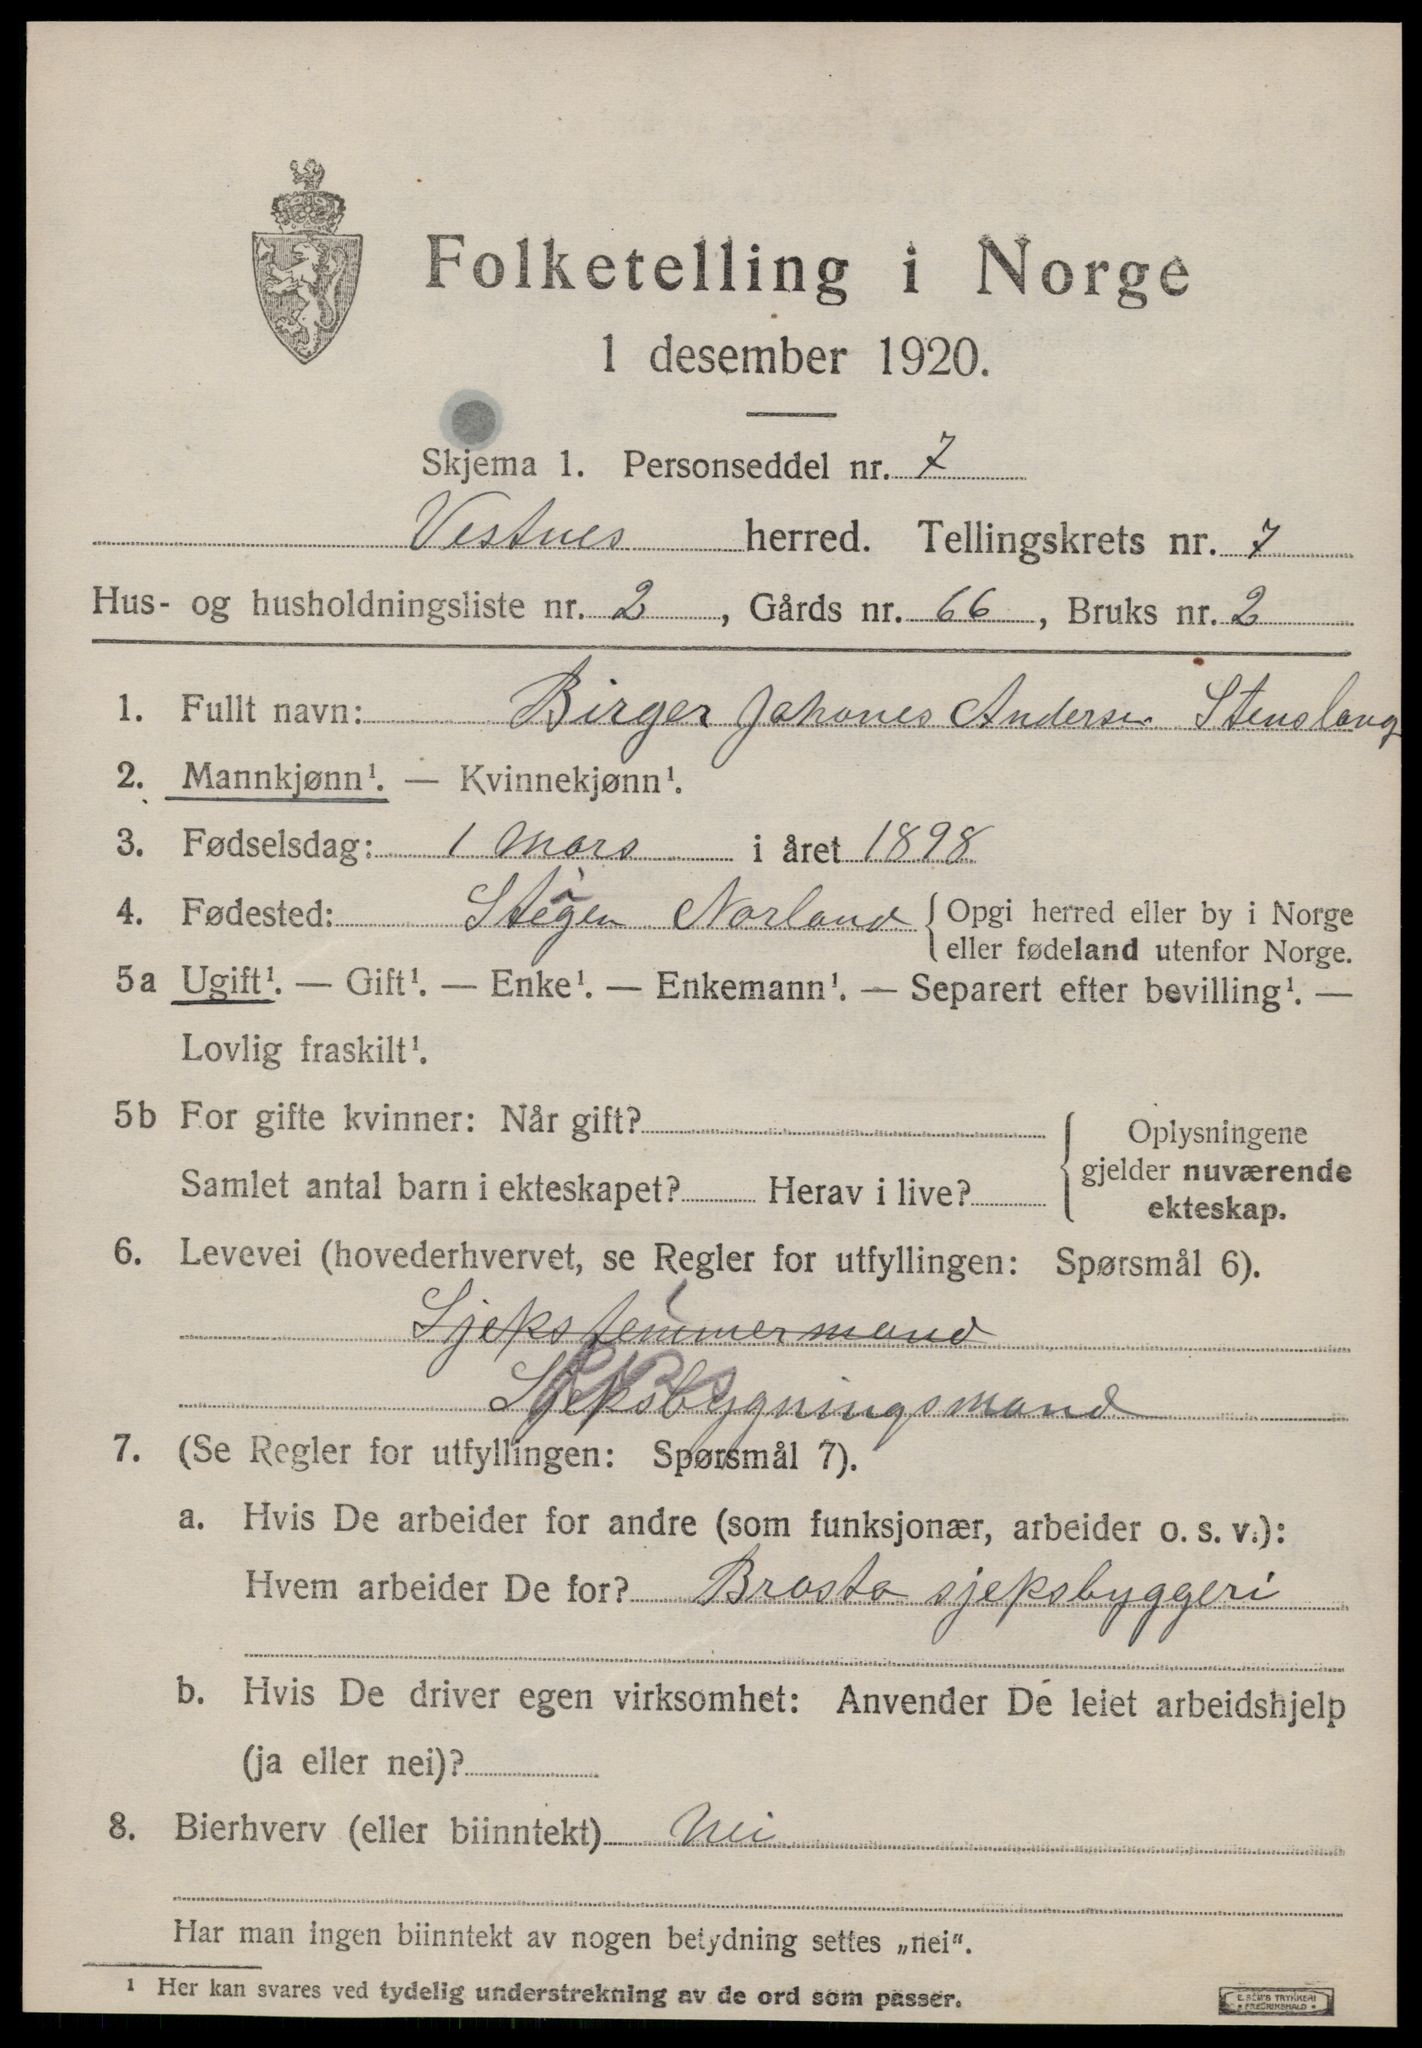 Folketelling i Norge
1 desember 1920.
Skjema 1. Personseddel nr. 7
Vestnes herred. Tellingskrets nr. 7
Hus- og husholdningsliste nr. 2, Gårds nr. 66, Bruks nr. 2
1. Fullt navn: Birger Johanes Andersen Stenslang
2. Mannkjønn¹. — Kvinnekjønn¹.
3. Fødselsdag: 1 Mars i året 1898
4. Fødested: Steigen Norland { Opgi herred eller by i Norge
eller fødeland utenfor Norge.
5a Ugift¹. — Gift¹. — Enke¹. — Enkemann¹. — Separert efter bevilling¹. —
Lovlig fraskilt¹.
5b For gifte kvinner: Når gift?
Samlet antal barn i ekteskapet? Herav i live?
Oplysningene
gjelder nuværende
ekteskap.
6. Levevei (hovederhvervet, se Regler for utfyllingen: Spørsmål 6).
Sjekstemmermand
Sjeksbygningsmand
7. (Se Regler for utfyllingen: Spørsmål 7).
a. Hvis De arbeider for andre (som funksjonær, arbeider o. s. v.):
Hvem arbeider De for? Brasta sjeksbyggeri
b. Hvis De driver egen virksomhet: Anvender De leiet arbeidshjelp
(ja eller nei)?
8. Bierhverv (eller biinntekt) Nei
Har man ingen biinntekt av nogen betydning settes „nei“.
¹ Her kan svares ved tydelig understrekning av de ord som passer.
E. SEM'S TRYKKERI
FREDRIKSHALD